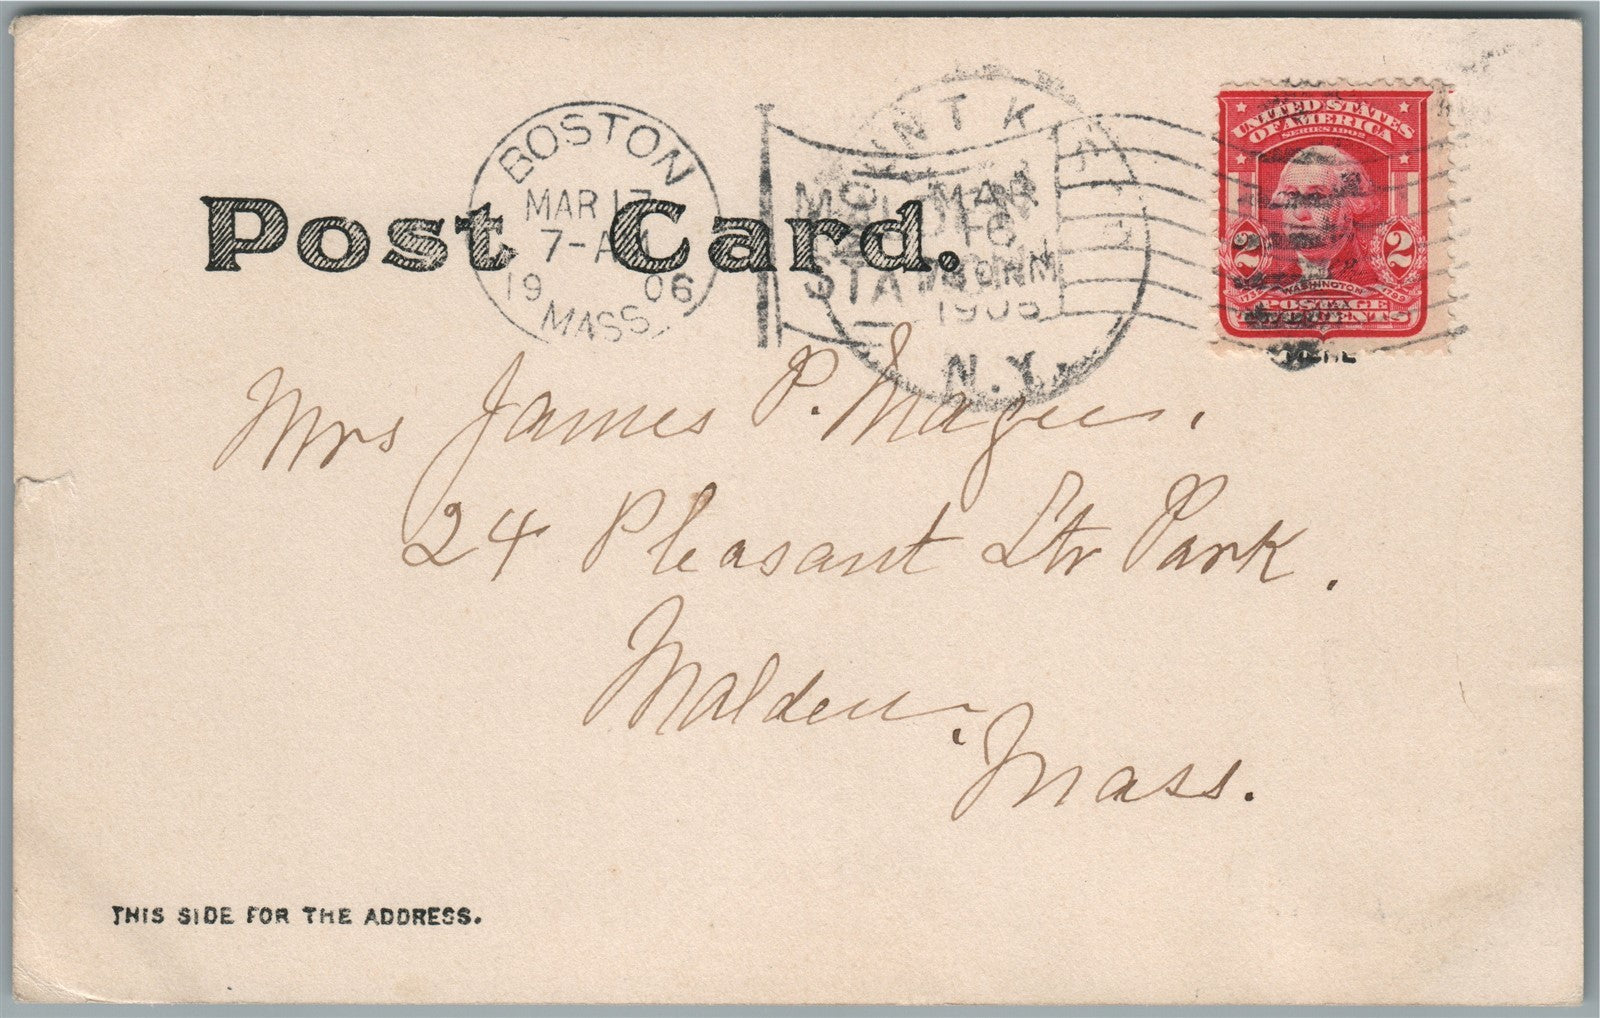 BOSTON
MAR 17
7-AM
19 06
MASS.
MOUNT K
MAR
16
N.Y.
MALDEN
STATION
UNITED STATES
OF AMERICA
SERIES 1902
2 2
WASHINGTON
POSTAGE
CENTS
Post Card.
Mrs James P. Magee.
24 Pleasant Str Park.
Malden.
Mass.
THIS SIDE FOR THE ADDRESS.